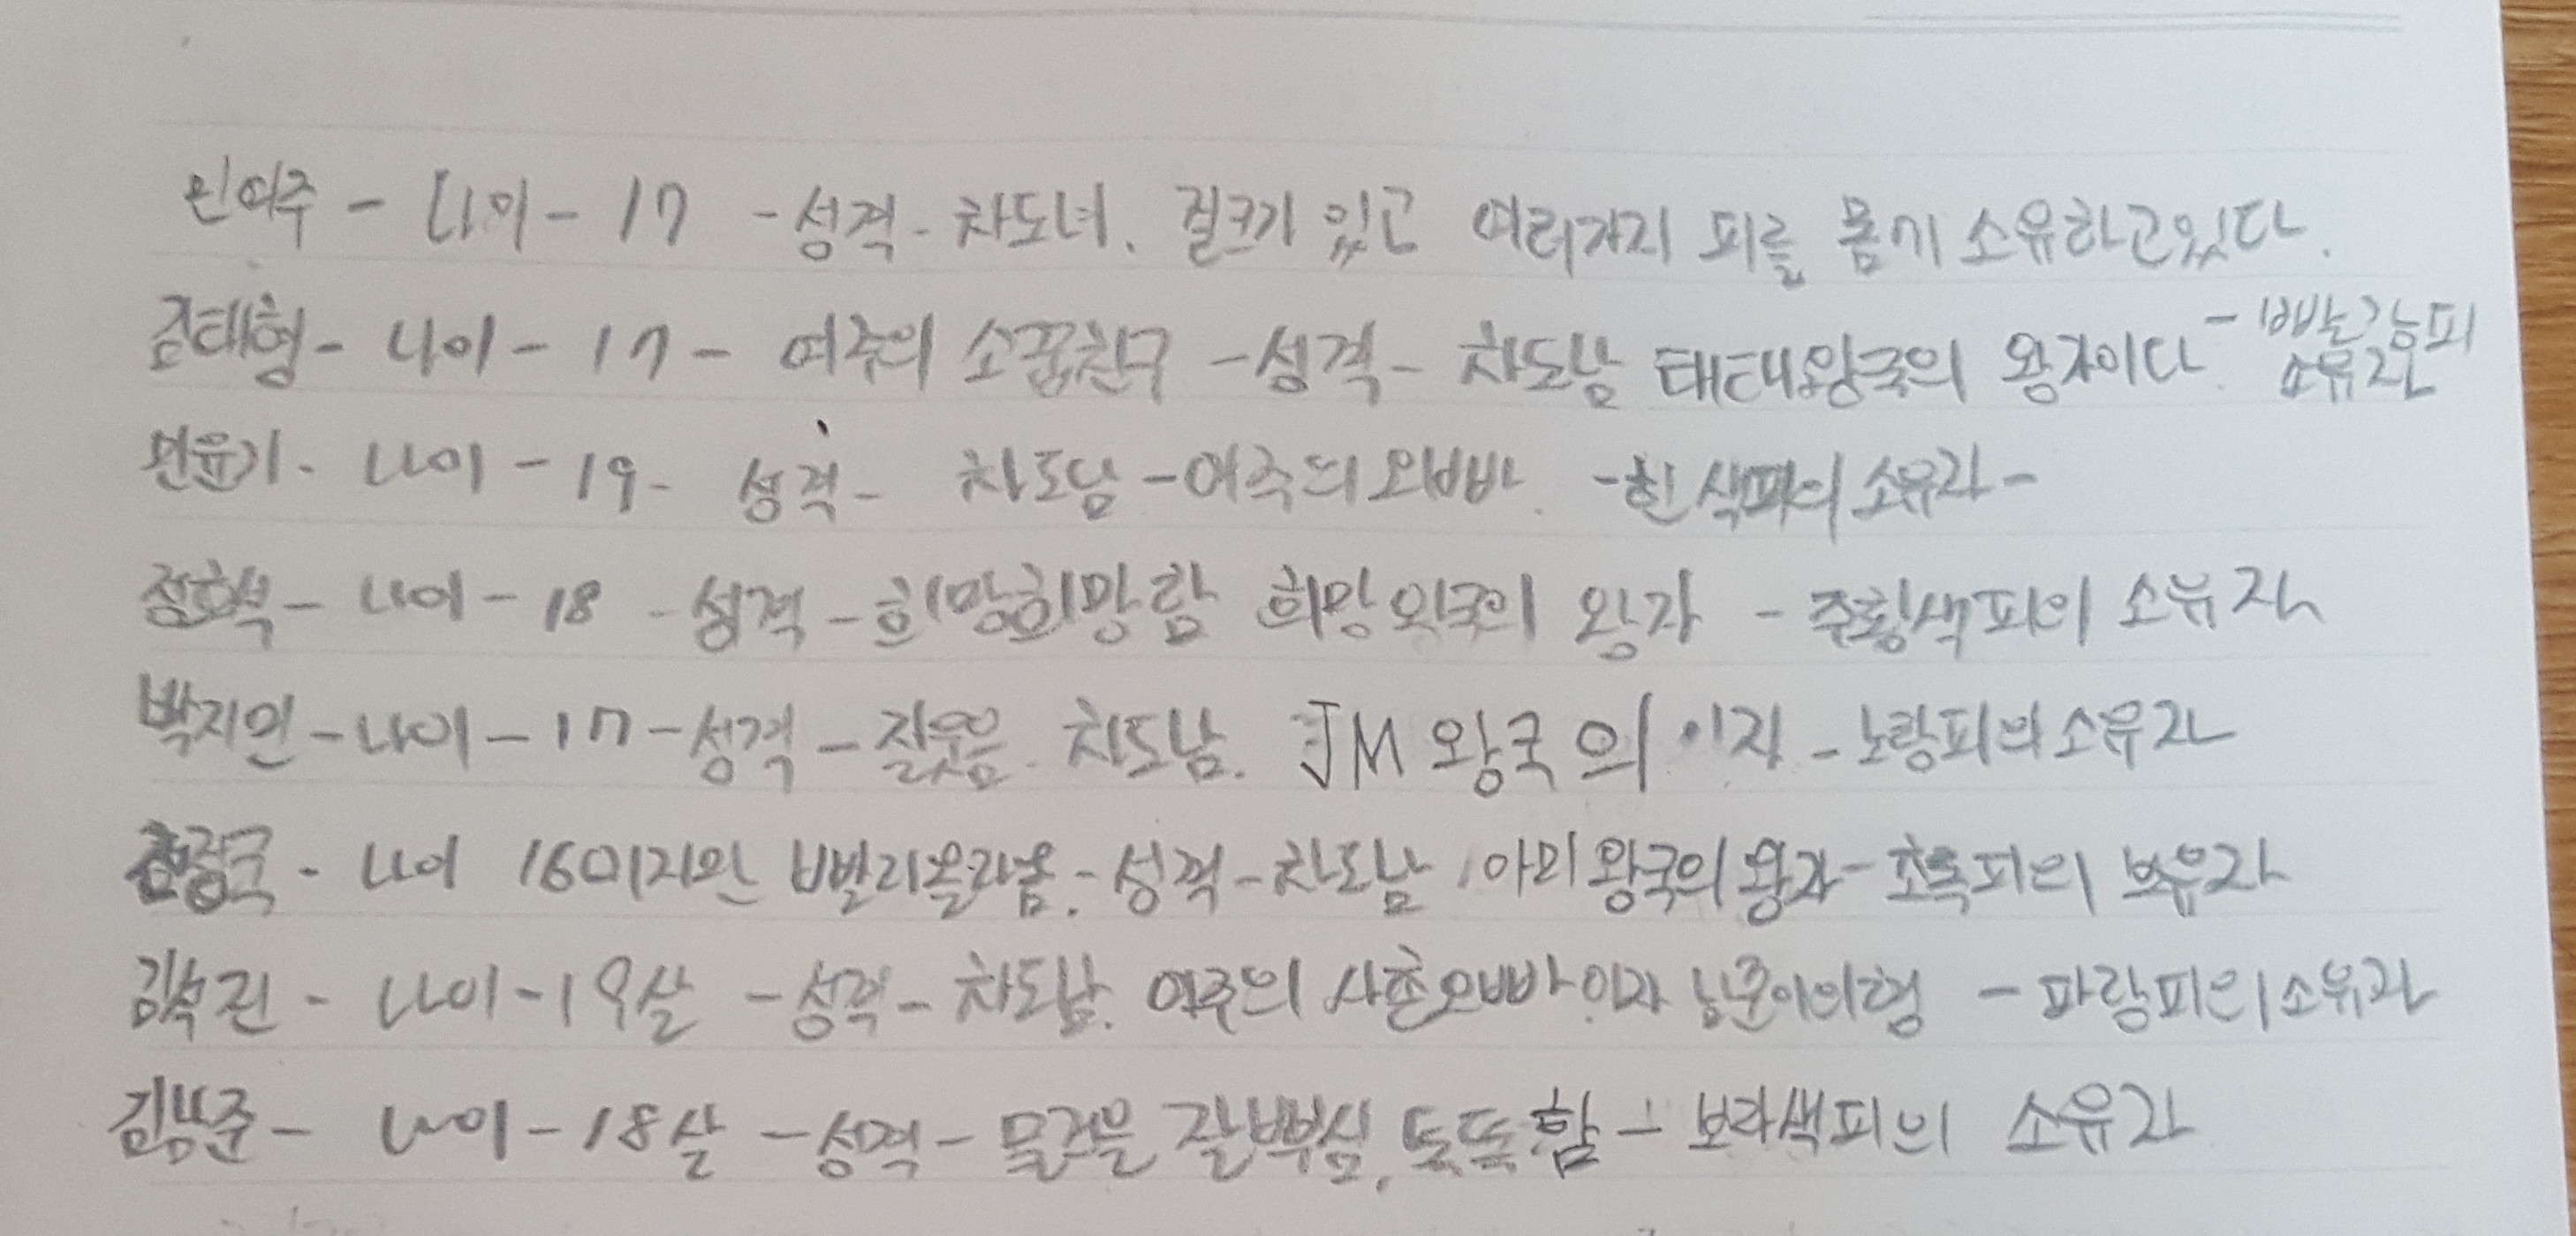 민여주 - 나이 - 17 - 성격 - 차도녀. 걸크가 있고 여러가지 피를 몸에 소유하고있다.
김태형 - 나이 - 17 - 여주의 소꿉친구 - 성격 - 차도남 태태왕국의 왕자이다 - 빨강피
소유자
민윤기 - 나이 - 19 - 성격 - 차도남 - 여주의 오빠. - 흰색피의 소유자 -
정호석 - 나이 - 18 - 성격 - 희망희망함 희망왕국의 왕자 - 주황색피의 소유자
박지민 - 나이 - 17 - 성격 - 잘웃음. 차도남. JM 왕국의 - 노랑피의 소유자
전정국 - 나이 16이지만 빨리올라옴. - 성격 - 차도남, 아미왕국의 왕자 - 초록피의 보유자
김석진 - 나이 - 19살 - 성격 - 차도남. 여주의 사촌오빠이자 남준이의형 - 파랑피의소유자
김남준 - 나이 - 18살 - 성격 - 물건을 잘뿌심, 또똑함 - 보라색피의 소유자